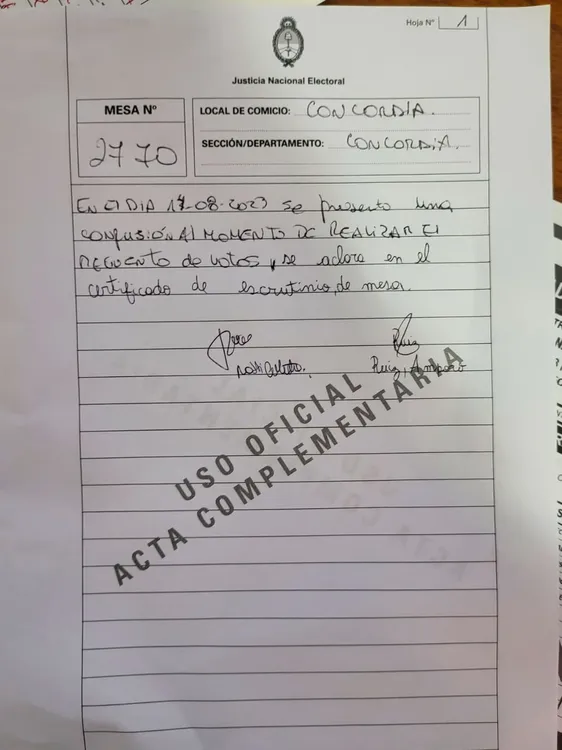 Hoja Nº 1
Justicia Nacional Electoral
MESA Nº
2770
LOCAL DE COMICIO: CONCORDIA.
SECCIÓN/DEPARTAMENTO: CONCORDIA.
EN El DIA -08-2023 se presento una
CONFUSIÓN Al MOMENTO DE REALIZAR El
RECUENTO de votos, se aclara en el
certificado de escrutinio, de mesa.
Ruiz
Ruiz, Amparo
USO OFICIAL
ACTA COMPLEMENTARIA